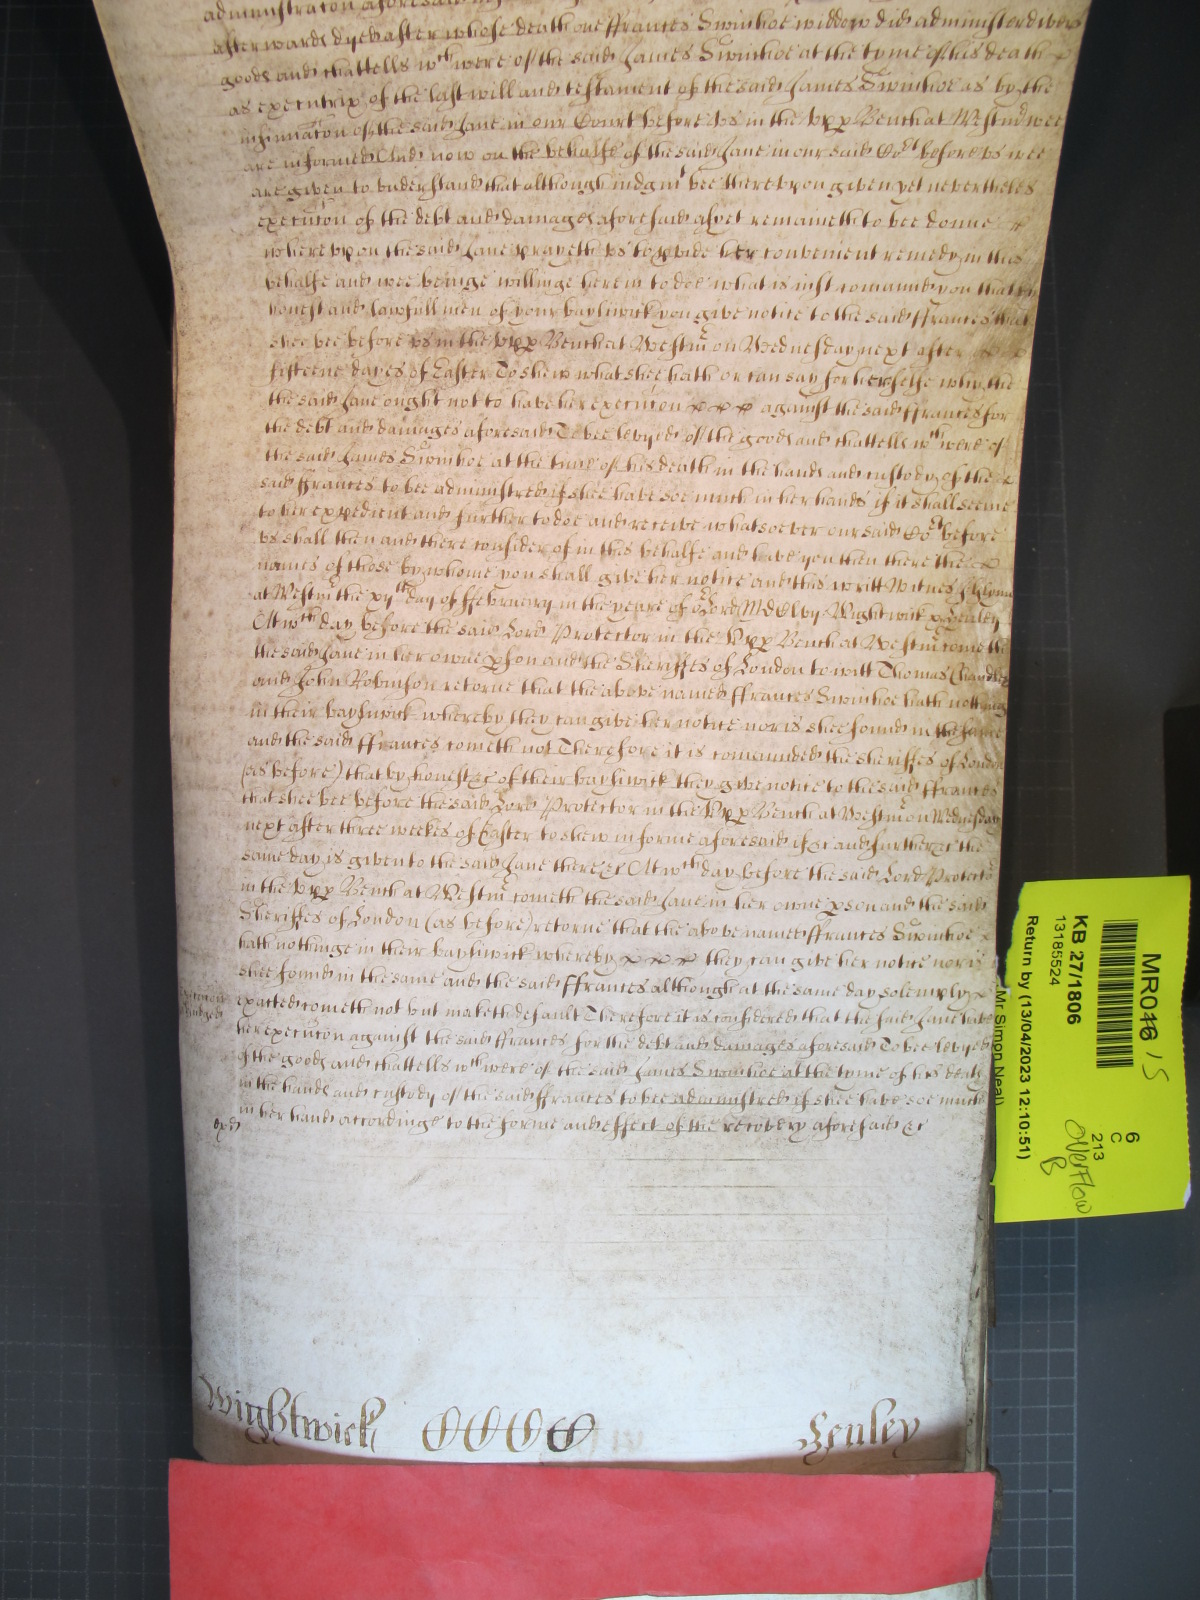 administracon aforesaid
afterwards dyed after whose death one ffrances Swinhoe widdow did administer divers
goods and chattells wch were of the said James Swinhoe at the tyme of his death
as executrix of the last will and testament of the said James Swinhoe as by the
informacon of the said Jane in our Court before us in the upp Bench at Westm wee
are informed And now on the behalfe of the said Jane in our said Cot before us wee
are given to understand that although iudgmt bee thereupon given yet neverthelesse
execucon of the debt and damages aforesaid as yet remaineth to bee donne
whereupon the said Jane prayeth us to pvide her convenient remedy in this
behalfe and wee beinge willinge herein to doe what is iust comannd you that by
honest and lawfull men of your bayliwick you give notice to the said ffrances that
shee bee before us in the upp Bench at Westm on Wednesday next after
fifteene dayes of Easter To shew what shee hath or can say for herselfe why the
the said Jane ought not to have her execucon x x x against the said ffrances for
the debt and damages aforesaid To bee levyed of the goods and chattells wch were of
the said James Swinhoe at the time of his death in the hands and custody of the
said ffrances to bee administred if shee have soe much in her hands if it shall seeme
to her expedient and further to doe and receive whatsoever our said Cot before
us shall then and there consider of in this behalfe and have you then there the
names of those by whome you shall give her notice and this writt Witnes
at Westm the xijth day of ffebruary in the yeare of or Lord MdClvij Wightwick x Henley
At wch day before the said Lord Protector in the Upp Bench at Westm cometh
the said Jane in her owne pson and the Sheriffes of London to witt Thomas Chandler
and John Robinson retorne that the above named ffrances Swinhoe hath nothing
in their bayliwick whereby they can give her notice nor is shee found in the same
and the said ffrances cometh not Therefore it is comannded the sheriffes of London
(as before) that by honest &c of their bayliwick they give notice to the said ffrances
that shee bee before the said Lord Protector in the Upp Bench at Westm on Wednesday
next after three weekes of Easter to shew in forme aforesaid if &c and further &c the
same day is given to the said Jane there &c At wch day before the said Lord Protector
in the Upp Bench at Westm cometh the said Jane in her owne pson and the said
Sheriffes of London (as before) retorne that the above named ffrances Swinhoe x
hath nothinge in their bayliwick whereby x x x they can give her notice nor is
shee found in the same and the said ffrances although at the same day solemply x
exacted cometh not but maketh default Therefore it is considered that the said Jane have
her execucon against the said ffrances for the debt and damages aforesaid To bee levyed
of the goods and chattells wch were of the said James Swinhoe at the tyme of his death
in the hands and custody of the said ffrances to bee administred if shee have soe much
in her hands accordinge to the forme and effect of the recovery aforesaid &c
Wightwick
Henley
MR046 / 5
KB 27/1806
13185524
Return by (13/04/2023 12:10:51)
(Mr Simon Neal)
6
C
213
Overflow
B